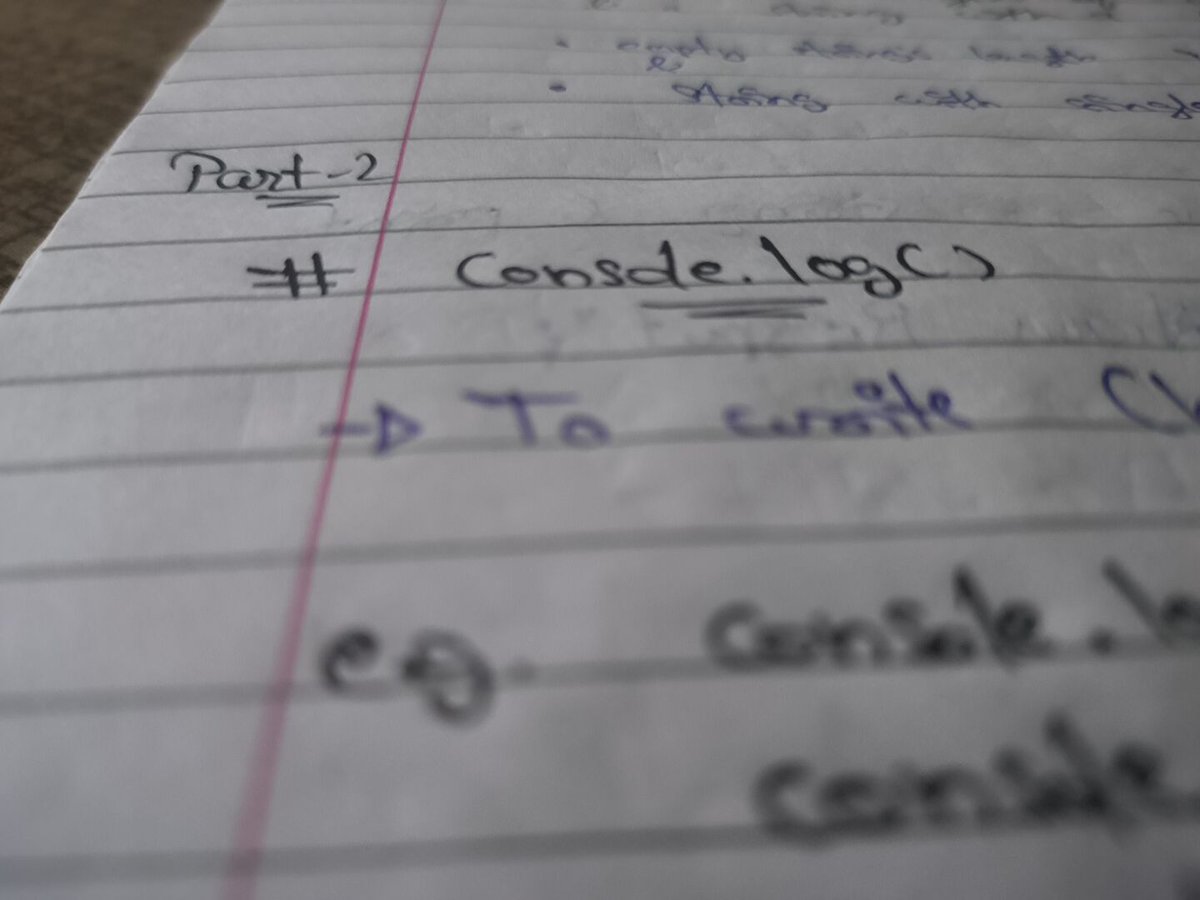 • empty strings length
• string with single
Part-2
# Console.log()
→ To write (
eg. console.l
console.